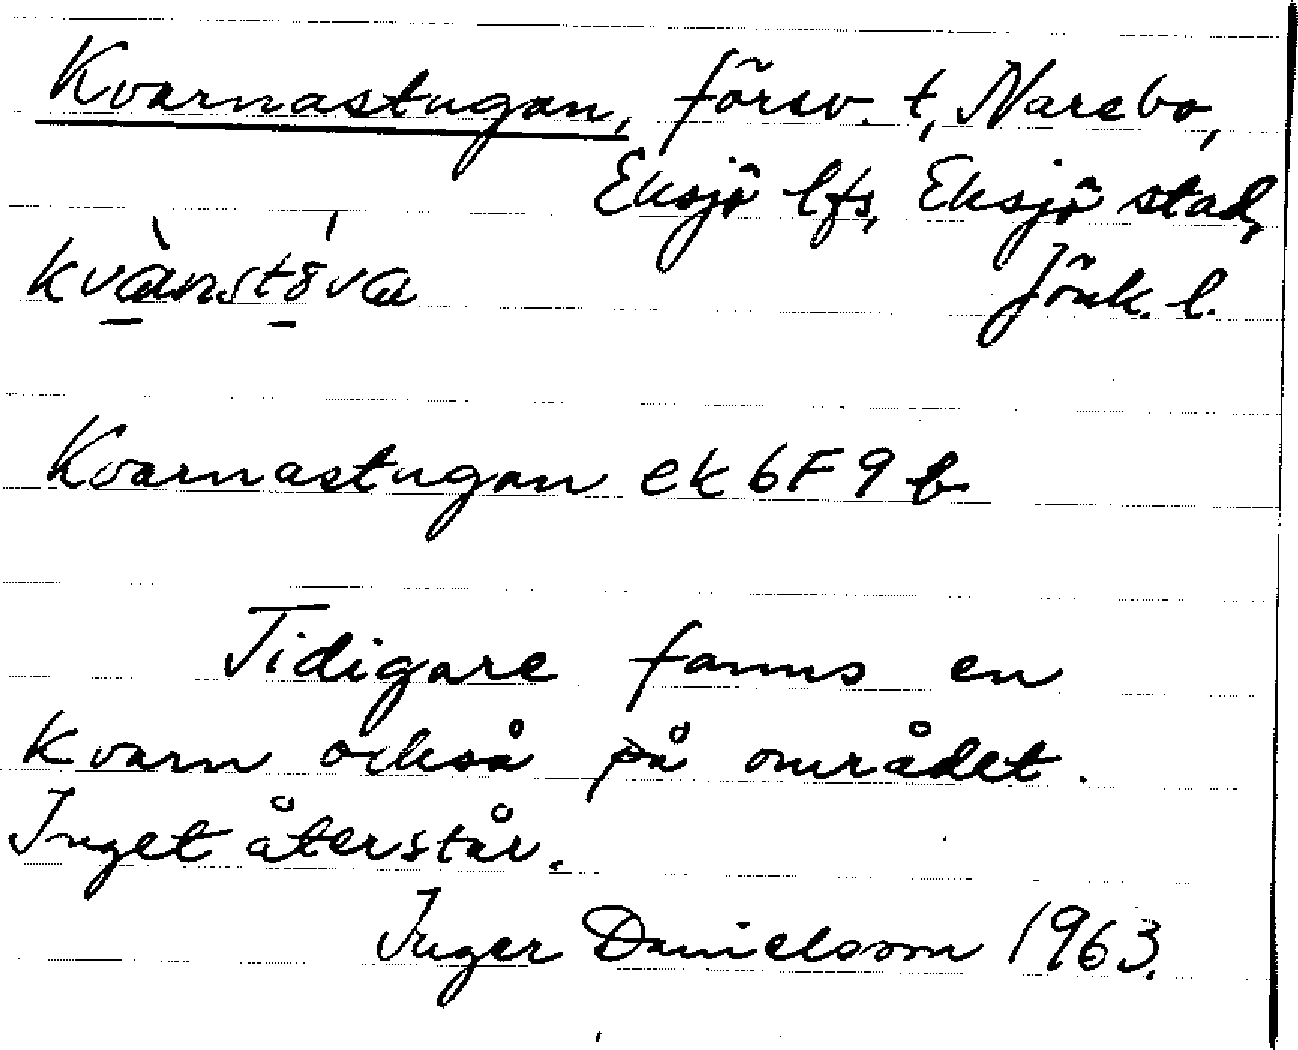 Kvarnastugan, försv. t, Narebo,
Eksjö lfs, Eksjö stad,
kvànstöva
Jönk. l.
Kvarnastugan ek 6F9b
Tidigare fanns en
kvarn också på området.
Inget återstår.
Inger Danielsson 1963.